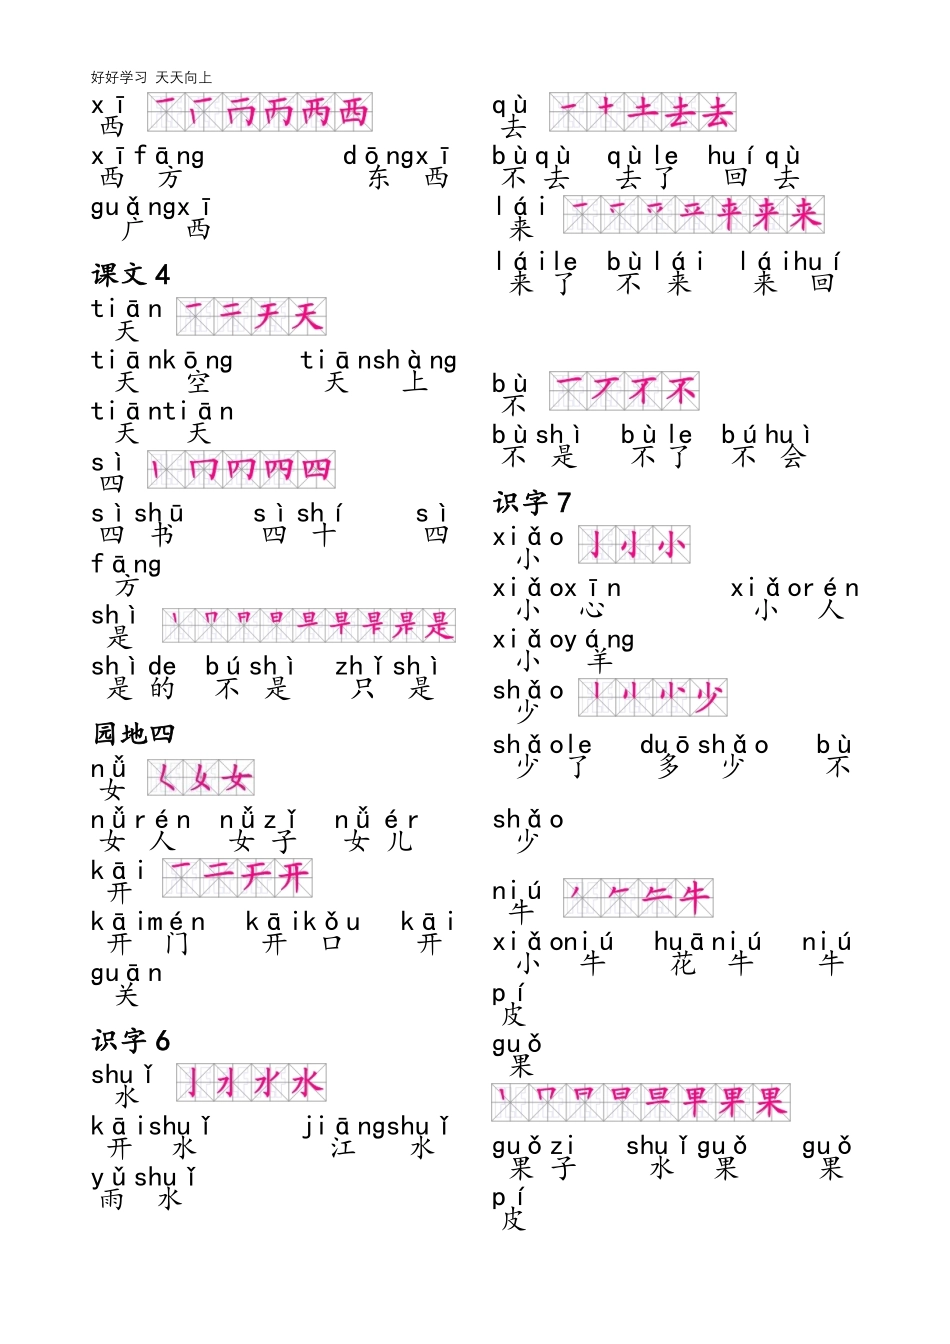 好好学习 天天向上
xī
西
xīfāng dōngxī
西方 东西
guǎngxī
广西
课文 4
tiān
天
tiānkōng tiānshàng
天空 天上
tiāntiān
天天
sì
四
sìshū sìshí sì
四书 四十 四
fāng
方
shì
是
shìde búshì zhǐshì
是的 不是 只是
园地四
nǚ
女
nǚrén nǚzǐ nǚér
女人 女子 女儿
kāi
开
kāimén kāikǒu kāi
开门 开口 开
guān
关
识字 6
shuǐ
水
kāishuǐ jiāngshuǐ
开水 江水
yǔshuǐ
雨水
qù
去
bùqù qùle huíqù
不去 去了 回去
lái
来
láile bùlái láihuí
来了 不来 来回
bù
不
bùshì bùle búhuì
不是 不了 不会
识字 7
xiǎo
小
xiǎoxīn xiǎorén
小心 小人
xiǎoyáng
小羊
shǎo
少
shǎole duōshǎo bù
少了 多少 不
shǎo
少
niú
牛
xiǎoniú huāniú niú
小牛 花牛 牛
pí
皮
guǒ
果
guǒzi shuǐguǒ guǒ
果子 水果 果
pí
皮